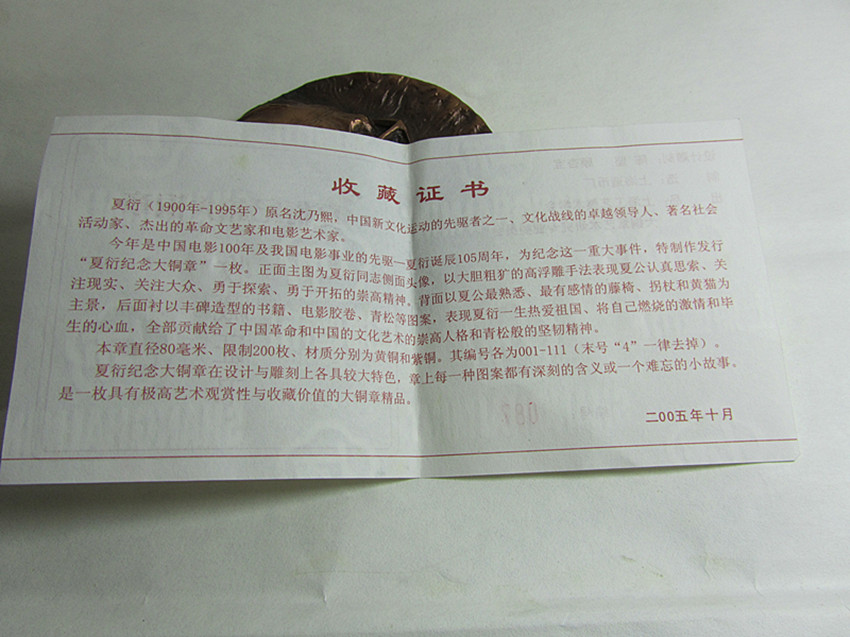 收藏证书
夏衍（1900年-1995年）原名沈乃熙，中国新文化运动的先驱者之一、文化战线的卓越领导人、著名社会
活动家、杰出的革命文艺家和电影艺术家。
今年是中国电影100年及我国电影事业的先驱—夏衍诞辰105周年，为纪念这一重大事件，特制作发行
“夏衍纪念大铜章”一枚。正面主图为夏衍同志侧面头像，以大胆粗犷的高浮雕手法表现夏公认真思索、关
注现实、关注大众、勇于探索、勇于开拓的崇高精神。背面以夏公最熟悉、最有感情的藤椅、拐杖和黄猫为
主景，后面衬以丰碑造型的书籍、电影胶卷、青松等图案，表现夏衍一生热爱祖国、将自己燃烧的激情和毕
生的心血，全部贡献给了中国革命和中国的文化艺术的崇高人格和青松般的坚韧精神。
本章直径80毫米、限制200枚、材质分别为黄铜和紫铜。其编号各为001-111（末号“4”一律去掉）。
夏衍纪念大铜章在设计与雕刻上各具较大特色，章上每一种图案都有深刻的含义或一个难忘的小故事。
是一枚具有极高艺术观赏性与收藏价值的大铜章精品。
二00五年十月